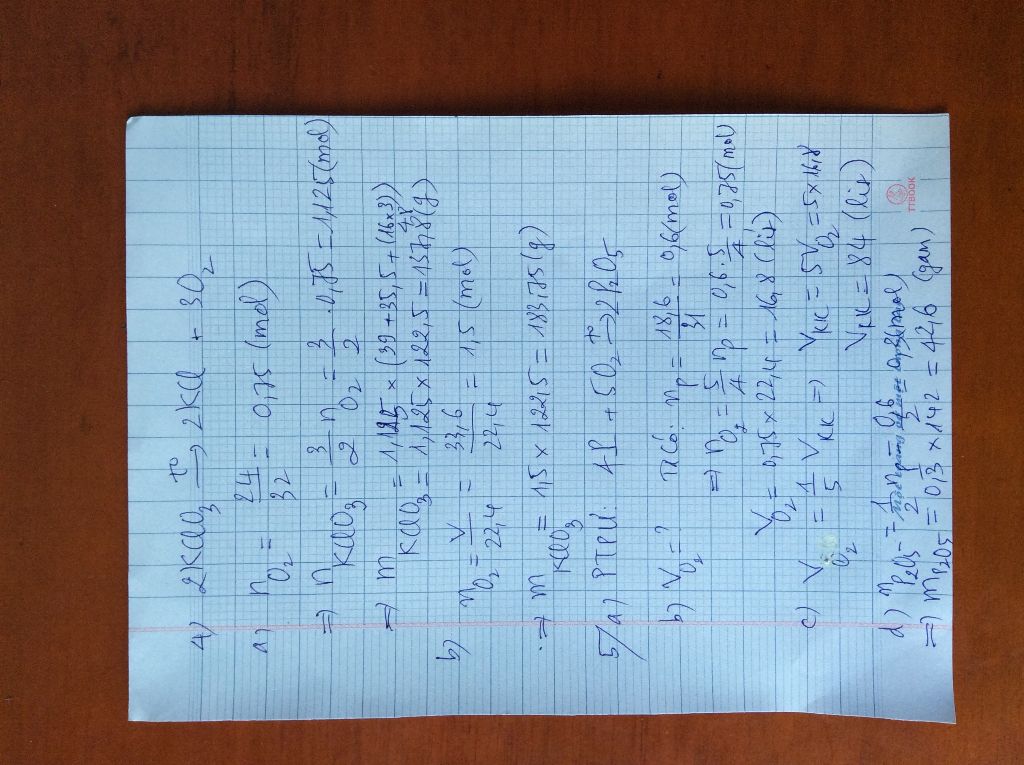 4) 2KClO3 t° → 2KCl + 3O2
a) nO2 = 24/32 = 0,75 (mol)
=) nKClO3 = 3/2 nO2 = 3/2 . 0,75 = 1,125 (mol)
=) mKClO3 = 1,125 × (39 + 35,5 + (16×3))
48
KClO3 = 1,125 × 122,5 = 137,8 (g)
b) nO2 = V/22,4 = 33,6/22,4 = 1,5 (mol)
=) mKClO3 = 1,5 × 122,5 = 183,75 (g)
5/a) PTPỨ: 4P + 5O2 t° → 2P2O5
b) VO2 = ? Ta có: nP = 18,6/31 = 0,6 (mol)
=) nO2 = 5/4 nP = 0,6 . 5/4 = 0,75 (mol)
VO2 = 0,75 × 22,4 = 16,8 (lít)
c) VO2 = 1/5 VKK =) VKK = 5VO2 = 5 × 16,8
VKK = 84 (lít)
d) nP2O5 = 1/2 nP = 0,6/2 = 0,3 (mol)
=) mP2O5 = 0,3 × 142 = 42,6 (gam)
TIBOOK